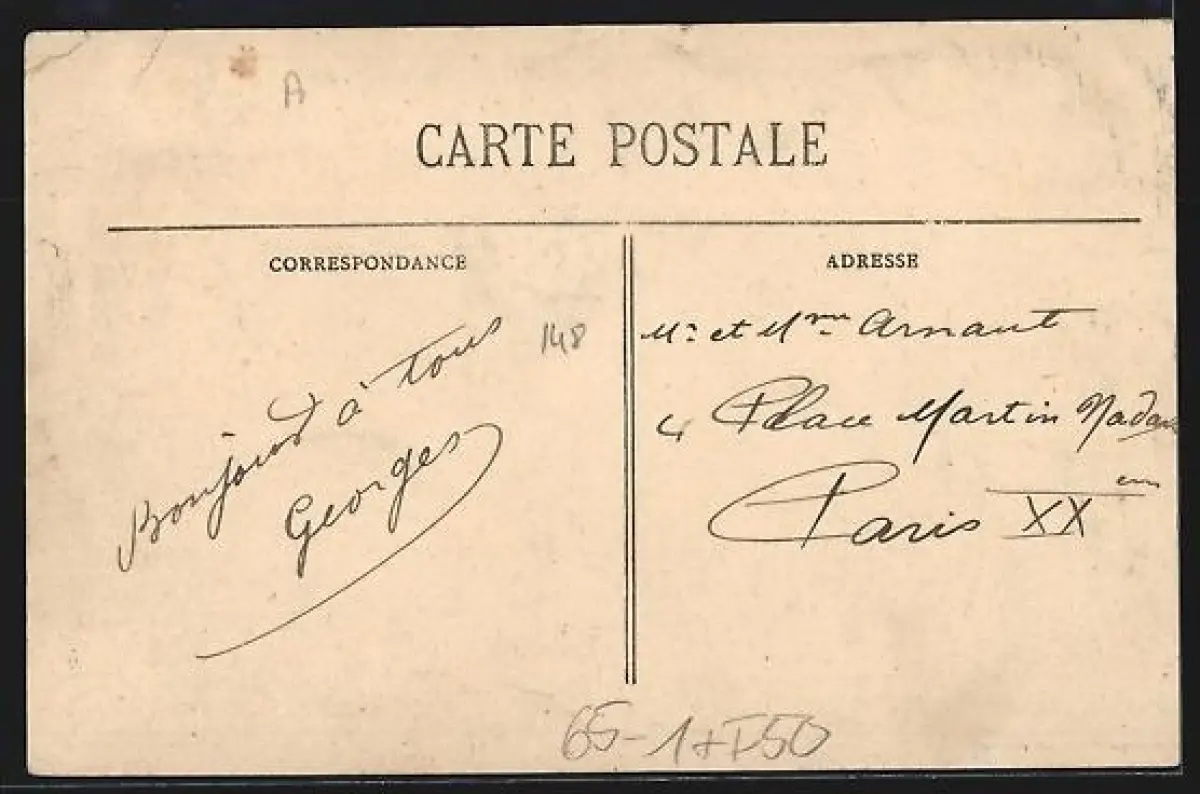 A
CARTE POSTALE
CORRESPONDANCE
Bonjour à tous
Georges
148
ADRESSE
Mr et Mme Arnaut
4 Place Martin Nadau
Paris XXem
65-1+F50